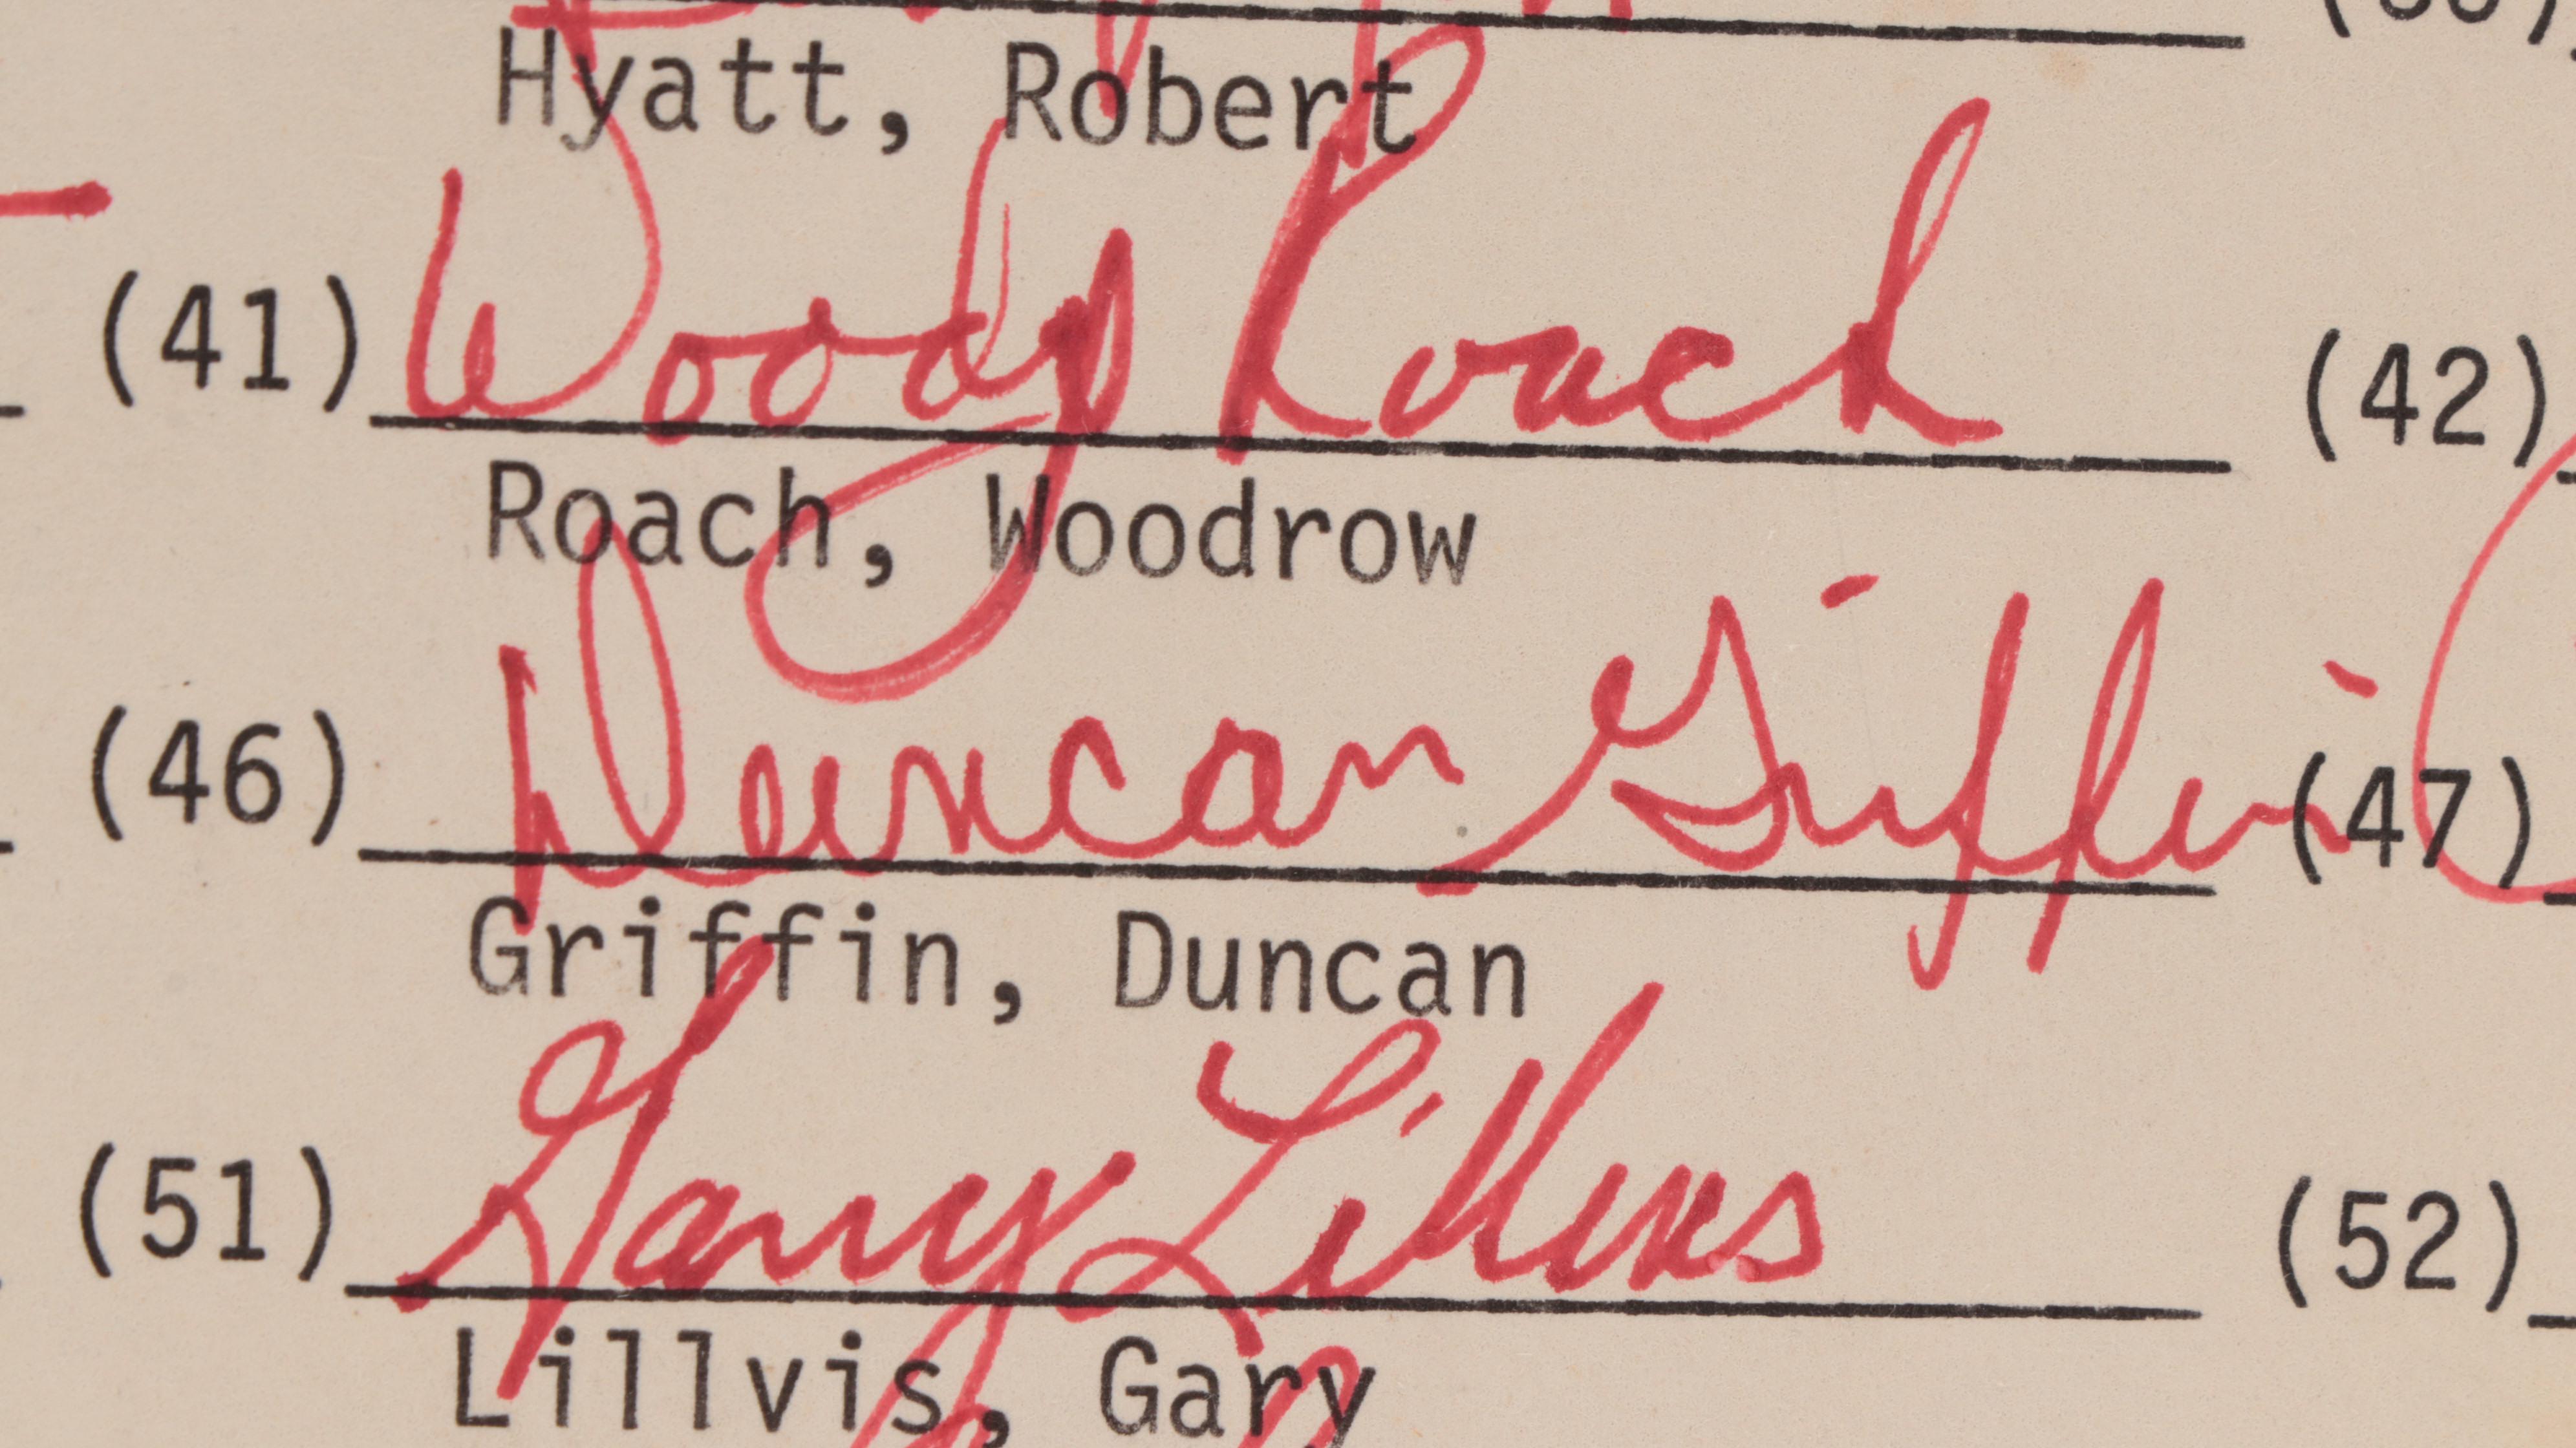 Hyatt, Robert
(41) Woody Roach (42)
Roach, Woodrow
(46) Duncan Griffin (47)
Griffin, Duncan
(51) Gary Lillvis (52)
Lillvis, Gary